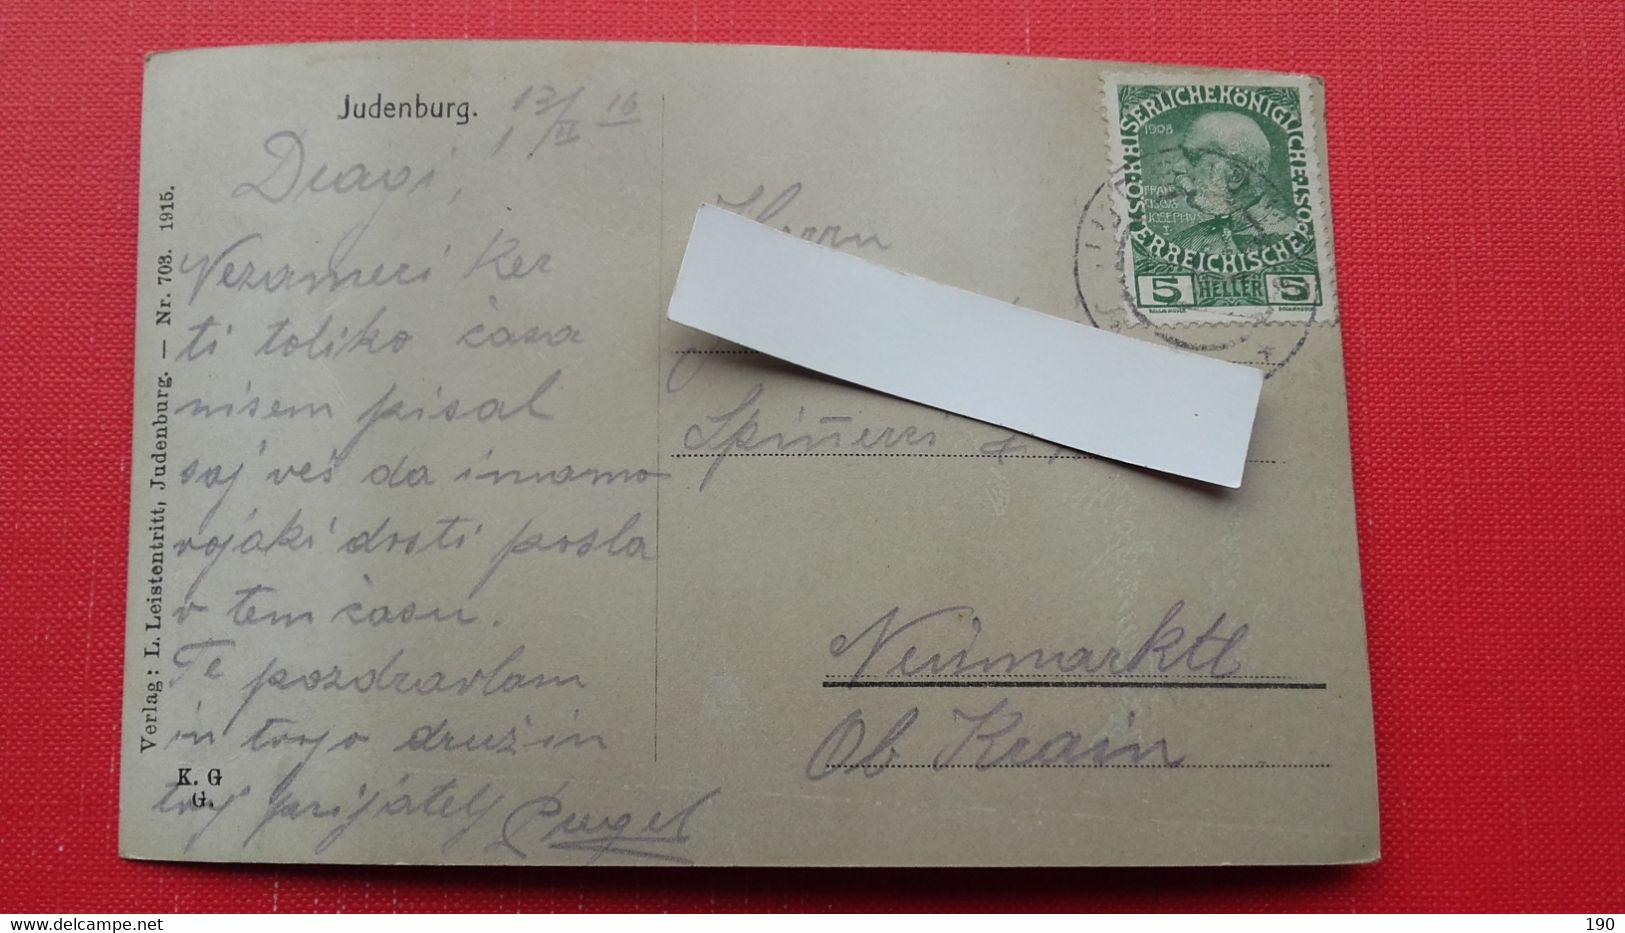 Judenburg. 13/II 16
Dragi,
Nezameri ker
ti toliko časa
nisem pisal
saj veš da imamo
vojaki dosti posla
v tem času.
Te pozdravlam
in tvojo družin
tvoj prijátelj
Verlag: L. Leistentritt, Judenburg. — Nr. 703. 1915.
K. G
G.
Herrn
Neŭmarktl
Ob Krain
ÖSTERREICHISCHE
1908
FRAN
CISCUS
JOSEPHUS
I
5 HELLER 5
www.delcampe.net
danijela
190